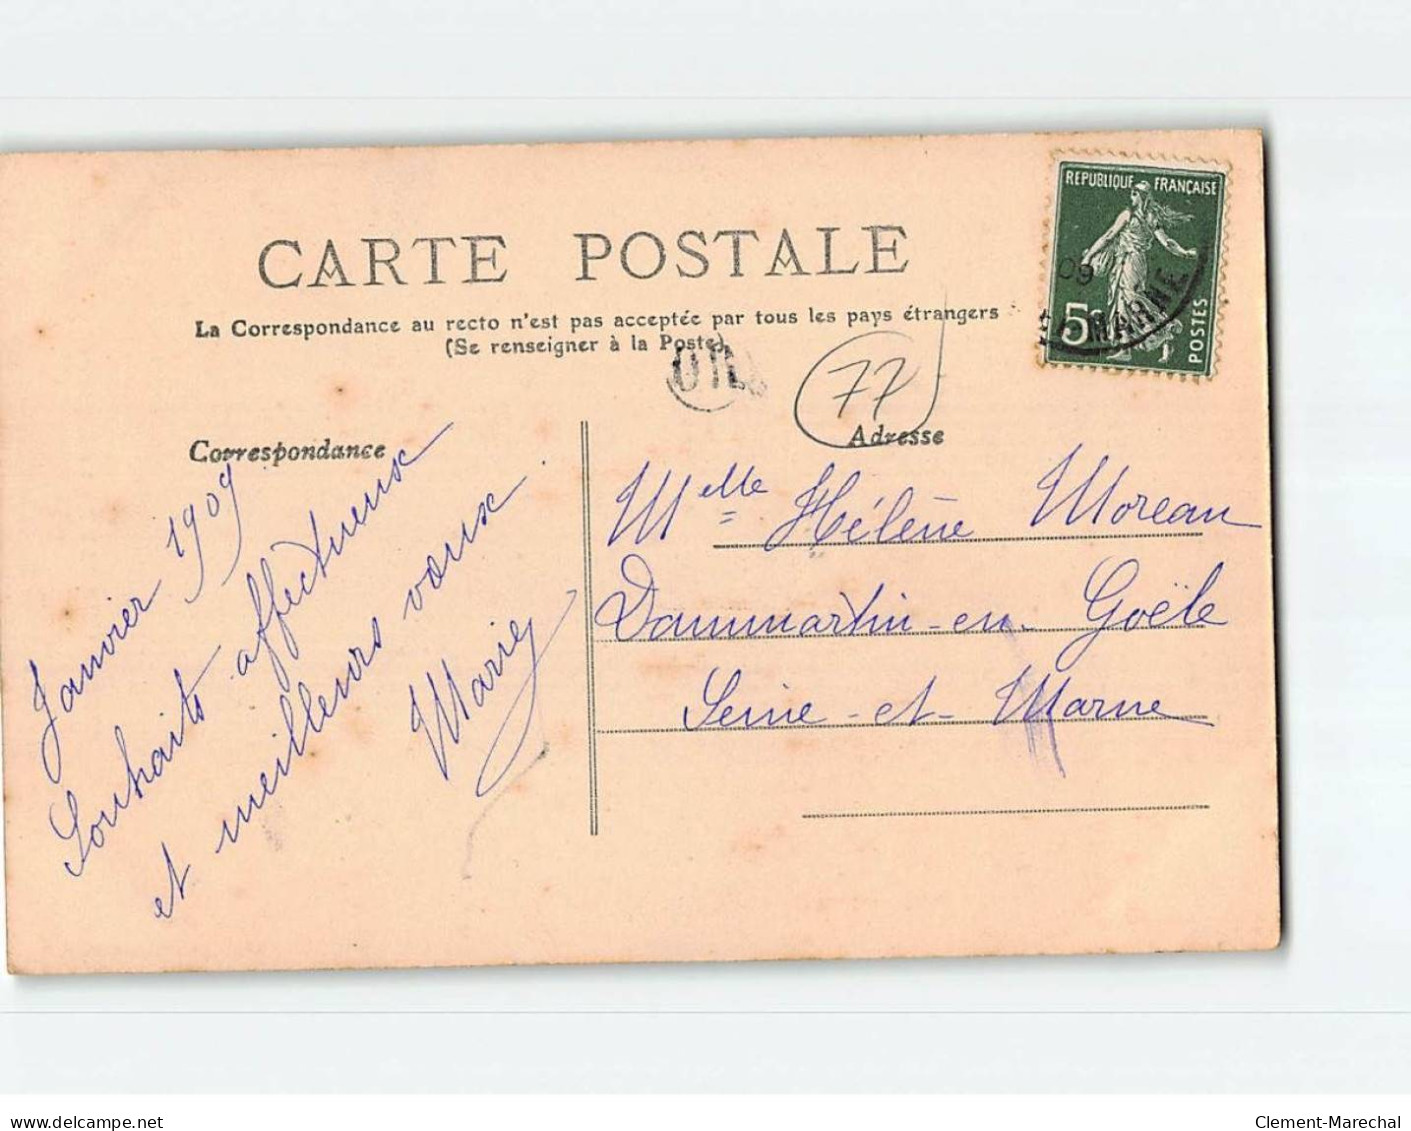 CARTE POSTALE
La Correspondance au recto n'est pas acceptée par tous les pays étrangers
(Se renseigner à la Poste)
REPUBLIQUE FRANÇAISE
5c
POSTES
09
MARNE
OR
77
Correspondance
Adresse
Janvier 1909
Souhaits affectueux
et meilleurs vœux
Marie
Melle Hélène Moreau
Dammartin-en-Goële
Seine-et-Marne
delcampe.net
Clement-Marechal